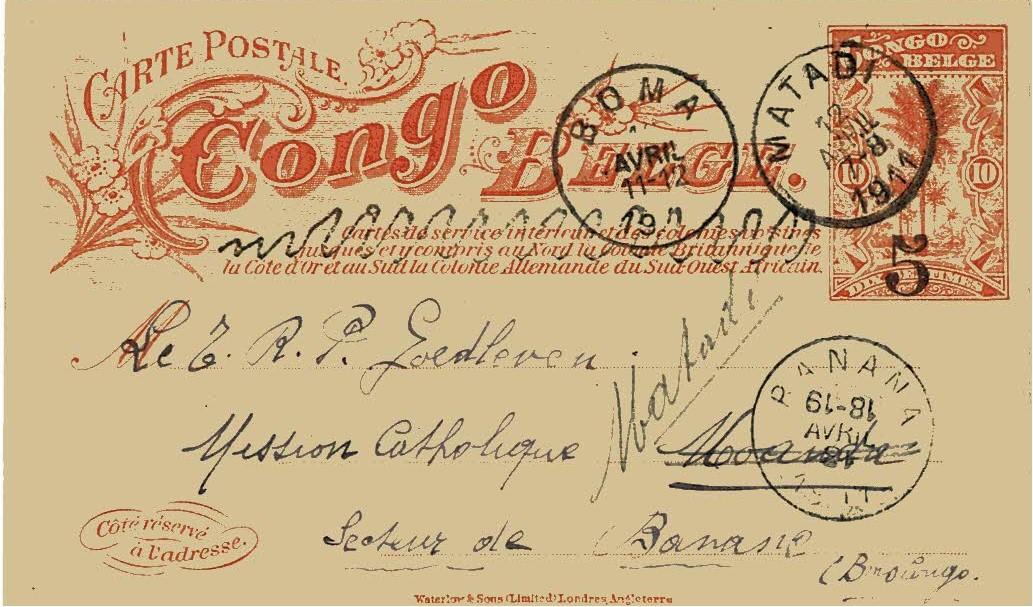 CARTE POSTALE.
Congo
BELGE.
CONGO
BELGE
10
DIX CENTIMES
5
BOMA
AVRIL
11-12
19
MATADI
12
AVRIL
7-8
1911
Cartes de service intérieur et des colonies voisines
jusques et y compris au Nord la Colonie Britannique de
la Côte d'Or et au Sud la Colonie Allemande du Sud Ouest Africain.
Le T. R. P. Goedleven
Matadi
Mission Catholique Moanda
BANANA
18-19
AVRIL
1911
Secteur de Banane
Côté réservé
à l'adresse.
Waterlow & Sons (Limited) Londres, Angleterre